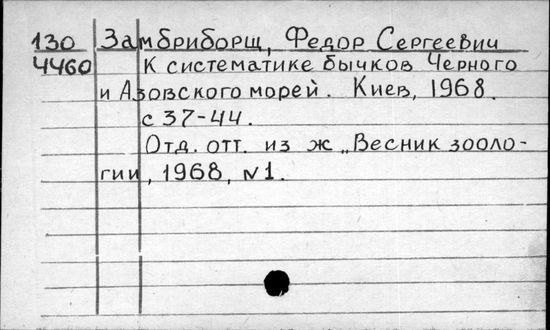 130 Замбриборщ, Федор Сергеевич
4460 К систематике бычков Черного
и Азовского морей. Киев, 1968.
с 37-44.
Отд. отт. из ж „Весник зооло-
гии, 1968, №1.